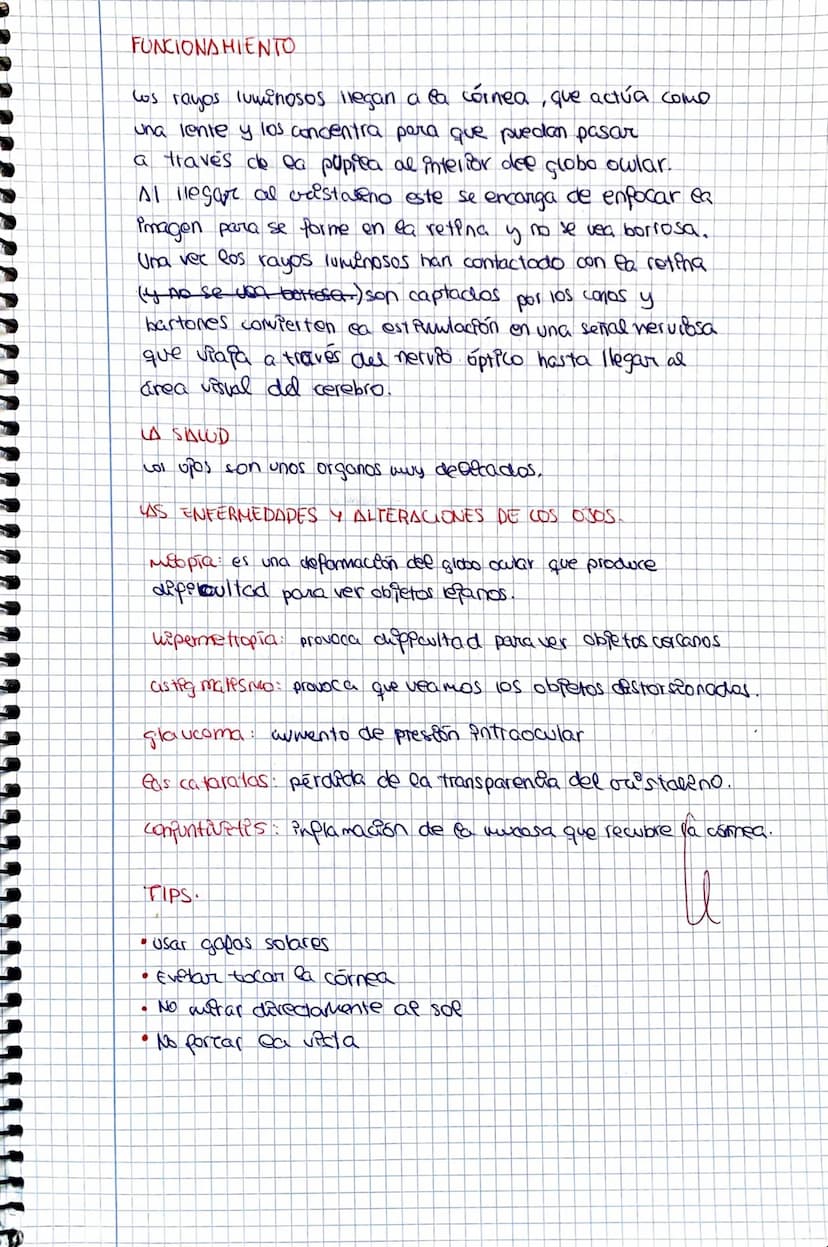 FUNCIONAMIENTO
Los rayos luminosos llegan a la córnea, que actúa como
una lente y los concentra para que puedan pasar
a través de la pupila al interior del globo ocular.
Al llegar al cristalino este se encarga de enfocar la
imagen para se forme en la retina y no se vea borrosa.
Una vez los rayos luminosos han contactado con la retina
(y no se vea borrosa.) son captados por los conos y
bastones convierten la estimulación en una señal nerviosa
que viaja a través del nervio óptico hasta llegar al
área visual del cerebro.
LA SALUD
Los ojos son unos organos muy delicados.
LAS ENFERMEDADES Y ALTERACIONES DE LOS OJOS.
Miopía: es una deformación del globo ocular que produce
dificultad para ver objetos lejanos.
hipermetropía: provoca dificultad para ver objetos cercanos
astigmatismo: provoca que veamos los objetos distorsionados.
glaucoma: aumento de presión intraocular
las cataratas: pérdida de la transparencia del cristalino.
conjuntivitis: inflamación de la mucosa que recubre la córnea.
TIPS.
• Usar gafas solares
• Evitar tocar la córnea
• No mirar directamente al sol
• No forzar la vista